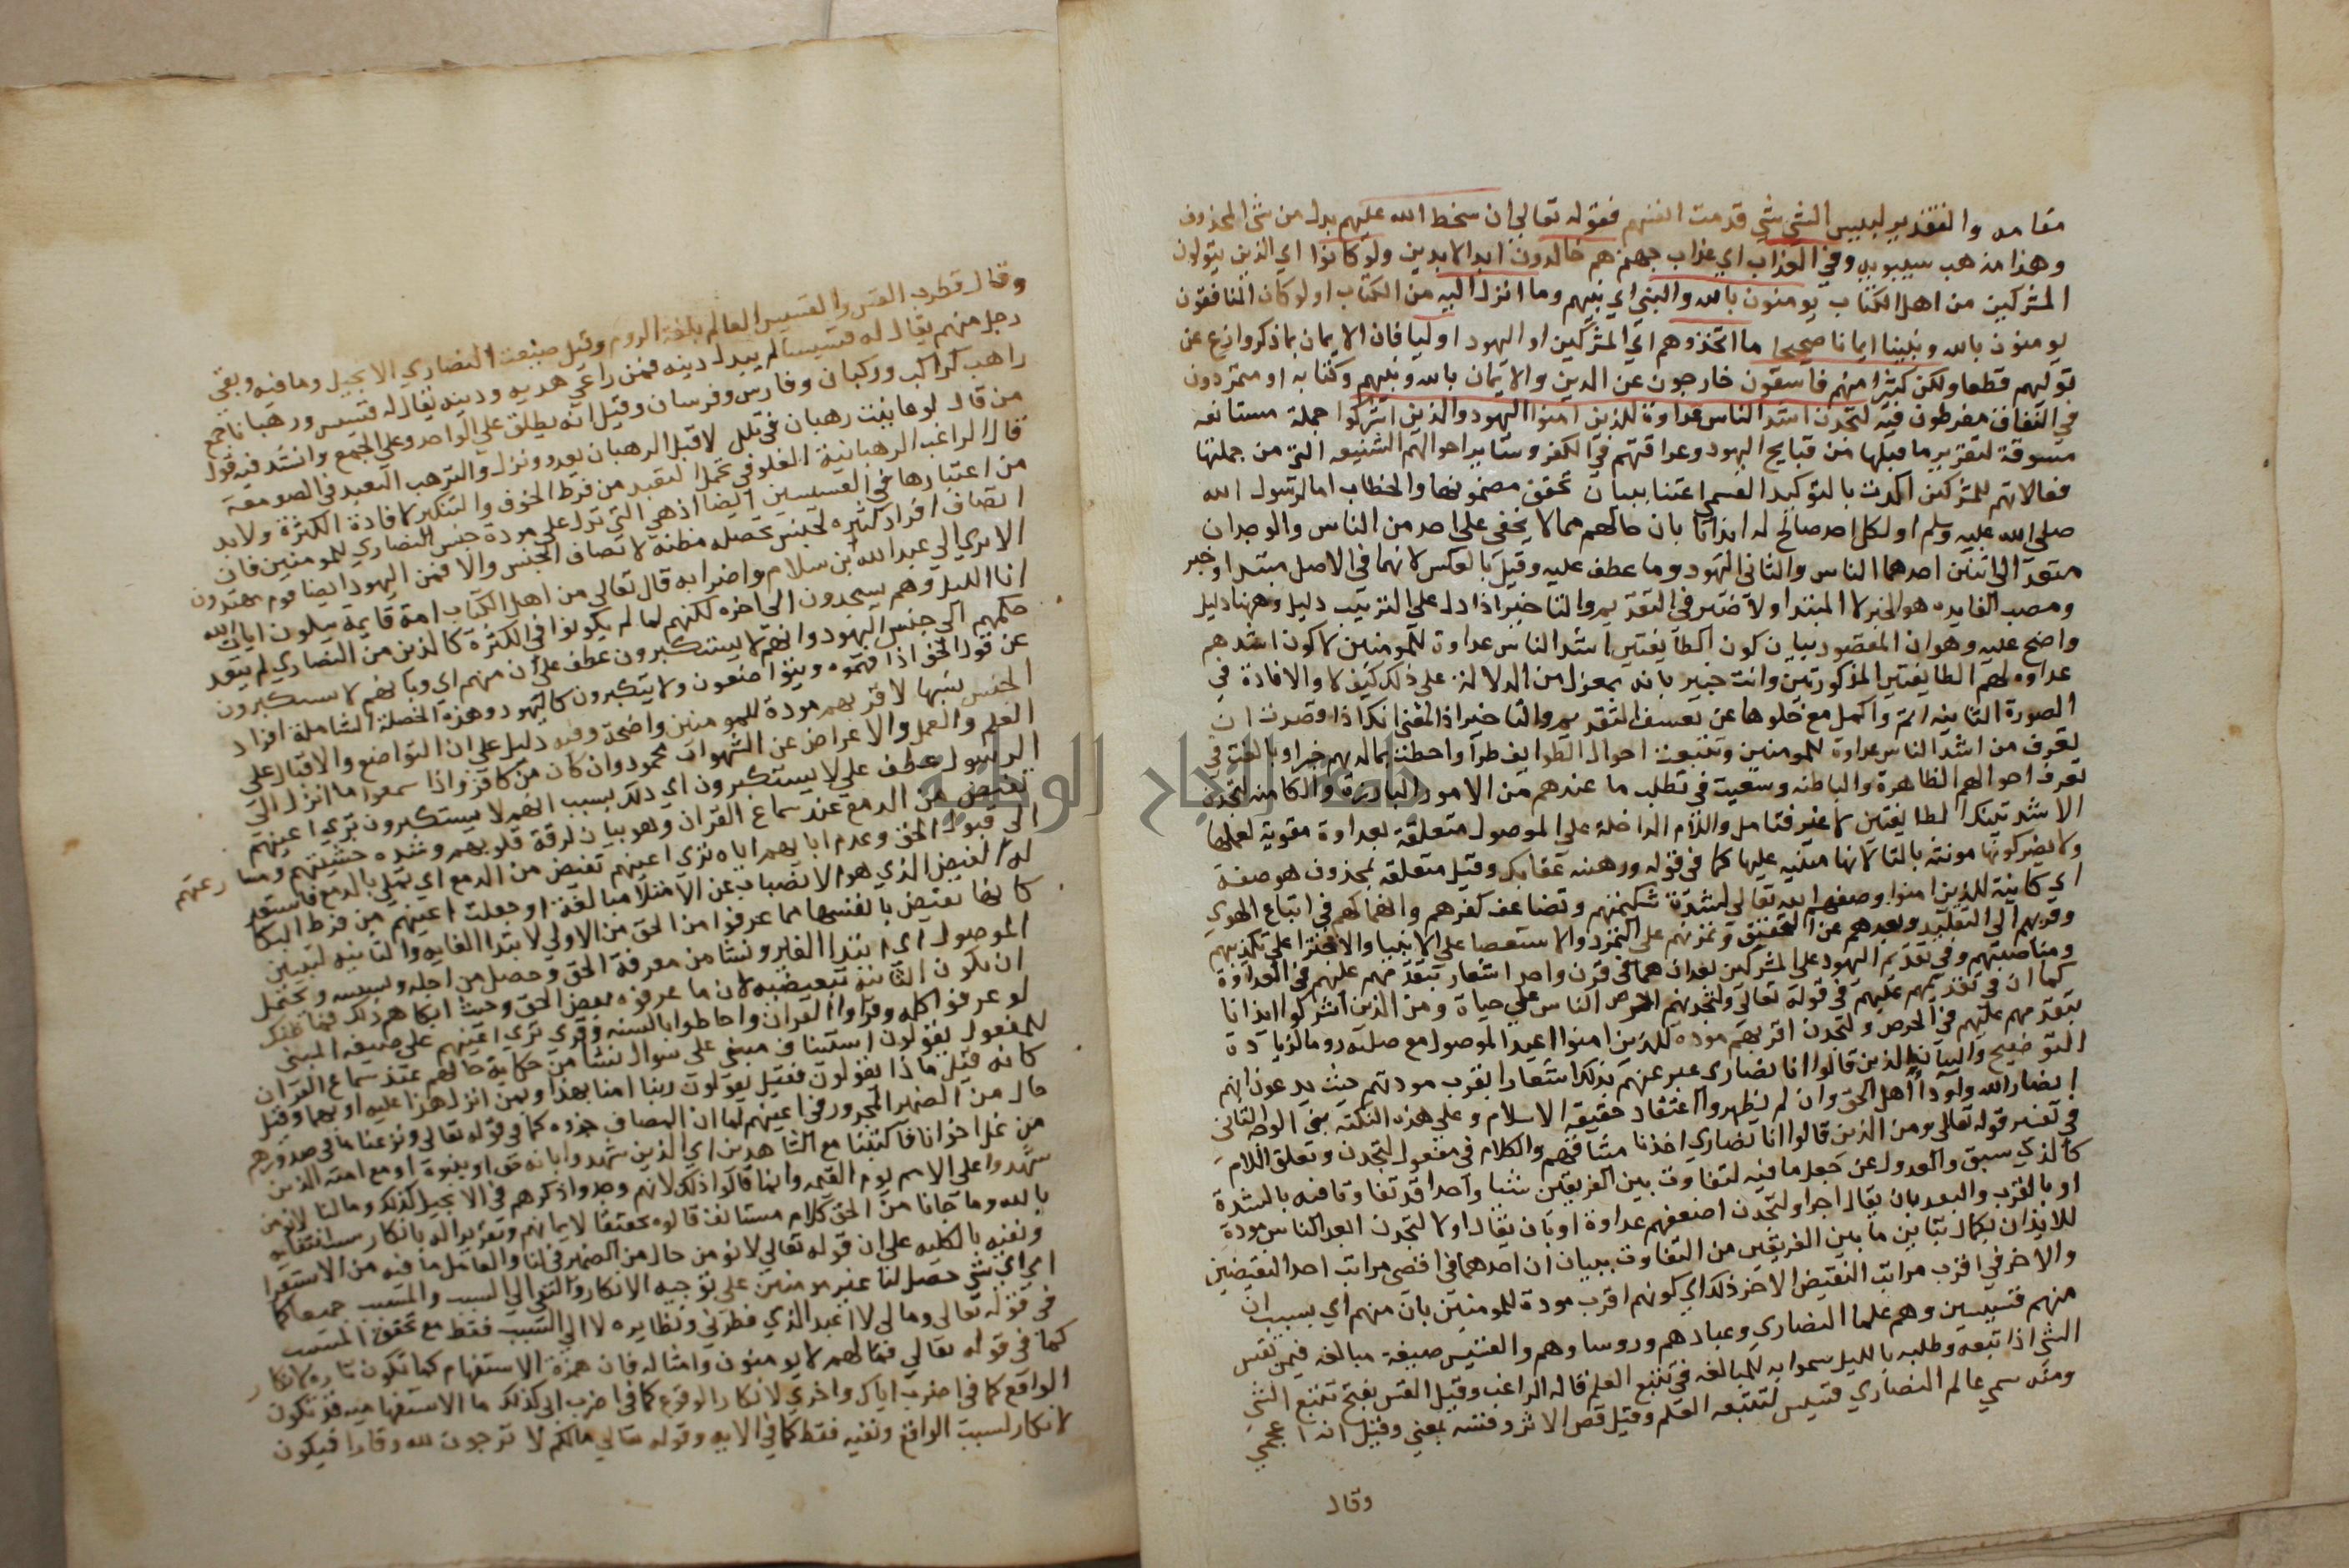 مقامه والتقدير لبيس الشي شي قدمت انفسهم فقوله تعالي ان سخط الله عليهم بدل من شي المحذوف
وهذا مذهب سيبويه وفي العذاب اي عذاب جهنم هم خالدون ابد الابدين ولو كانوا اي الذين يتولون
المشركين من اهل الكتاب يومنون بالله والنبي اي نبيهم وما انزل اليه من الكتاب او لو كان المنافقون
يومنون بالله ونبينا ايمانا صحيحا ما اتخذوهم اي المشركين او اليهود اوليا فان الايمان بما ذكر وازع عن
توليهم قطعا ولكن كثيرا منهم فاسقون خارجون عن الدين والايمان بالله ونبيهم وكتابه او متمردون
في النفاق مفرطون فيه لتجدن اشد الناس عداوة للذين امنوا اليهود والذين اشركوا جملة مستانفه
مسوقة لتقرير ما قبلها من قبايح اليهود وعراقتهم في الكفر وساير احوالهم الشنيعه التي من جملتها
موالاتهم للمشركين اكدت بالتوكيد القسمي اعتنا ببيان تحقق مضمونها والخطاب اما لرسول الله
صلي الله عليه وسلم او لكل احد صالح له ايذانا بان حالهم مما لا يخفى على احد من الناس والوجدان
متعد الي اثنين احدهما الناس والثاني اليهود وما عطف عليه وقيل بالعكس لانهما في الاصل مبتدا وخبر
ومصب الفايده هو الخبر لا المبتدا ولا ضير في التقديم والتاخير اذا دل على الترتيب دليل وههنا دليل
واضح عليه وهو ان المقصود بيان كون الطايفتين اشد الناس عداوة للمومنين لا كون اشدهم
عداوه لهم الطايفتين المذكورتين وانت خبير بانه بمعزل من الدلالة على ذلك كيف لا والافادة في
الصورة الثانية اتم واكمل مع خلوها عن تعسف التقديم والتاخير اذ المعنى انك اذا قصدت ان
تعرف من اشد الناس عداوة للمومنين وتتبعت احوال الطوايف طرا واحطت بما لديهم خبرا وبالغت في
تعرف احوالهم الظاهرة والباطنه وسعيت في تطلب ما عندهم من الامور البارزة والكامنه لتجدن
الاشد تينك الطايفتين لا غير فتامل واللام الداخلة علي الموصول متعلقة بعداوة مقوية لعملها
ولا يضر كونها مونثة بالتا لانها مبنيه عليها كما في قوله ورهبة عقابك وقيل متعلقة بمحذوف هو صفة
اي كاينة للذين امنوا وصفهم الله تعالي بشدة شكيمتهم وتضاعف كفرهم وانهماكهم في اتباع الهوي
وقربهم الي التقليد وبعدهم عن التحقيق وتمرنهم علي التمرد والاستعصا علي الانبيا والاجترا علي تكذيبهم
ومناصبتهم وفي تقديم اليهود علي المشركين بعد ان هما في قرن واحد اشعار بتقدمهم عليهم في العداوة
كما ان في تقديمهم عليهم في قوله تعالي ولتجدنهم احرص الناس علي حياة ومن الذين اشركوا ايذانا
بتقدمهم عليهم في الحرص ولتجدن اقربهم موده للذين امنوا اعيد الموصول مع صلته روما لزيادة
التوضيح والبيان الذين قالوا انا نصاري عبر عنهم بذلك اشعارا بقرب مودتهم حيث يدعون انهم
انصار الله واودا اهل الحق وان لم يظهروا اعتقاد حقيقة الاسلام وعلي هذه النكتة مبني الوجه الثاني
في تفسير قوله تعالي ومن الذين قالوا انا نصاري اخذنا ميثاقهم والكلام في مفعول لتجدن وتعلق اللام
كالذي سبق والعدول عن جعل ما فيه التفاوت بين الفريقين شيا واحدا قد تفاوتا فيه بالشدة
او بالقرب والبعد بان يقال اخرا ولتجدن اضعفهم عداوة او بان يقال اولا لتجدن ابعد الناس مودة
للايذان بكمال تباين ما بين الفريقين من التفاوت ببيان ان احدهما في اقصى مراتب احد النقيضين
والاخر في اقرب مراتب النقيض الاخر ذلك اي كونهم اقرب مودة للمومنين بان منهم اي بسبب ان
منهم قسيسين وهم علما النصاري وعبادهم وروساوهم والقسيس صيغة مبالغه من تقسس
الشي اذا تبعه وطلبه بالليل سموا به للمبالغه في تتبع العلم قاله الراغب وقيل القس بفتح تتبع الشي
ومنه سمي عالم النصاري قسيس لتتبعه العلم وقيل قص الاثر وقسه بمعني وقيل انه اعجمي
وقال
وقال قطرب القس والقسيس العالم بلغة الروم وقيل ضيعت النصاري الانجيل وما فيه وبقي
رجل منهم يقال له قسيسا لم يبدل دينه فمن راعي هديه ودينه يقال له قسيس ورهبانا جمع
راهب كراكب وركبان وفارس وفرسان وقيل انه يطلق علي الواحد وعلي الجمع وانشد فيه قول
من قال لو عاينت رهبان في قلل لاقبل الرهبان يعدو ونزل والترهب التعبد في الصومعة
قال الراغب الرهبانية الغلو في تحمل التعبد من فرط الخوف والتنكير لافادة الكثرة ولابد
من اعتبارها في القسيسين ايضا اذ هي التي تدل علي مودة جنس النصاري للمومنين فان
اتصاف افراد كثيره لجنس بخصله مظنة لاتصاف الجنس والا فمن اليهود ايضا قوم مهتدون
الا يري الي عبد الله ابن سلام واضرابه قال تعالي من اهل الكتاب امة قايمة يتلون ايات الله
انا الليل وهم يسجدون الى اخره لكنهم لما لم يكونوا في الكثرة كالذين من النصاري لم يتعد
حكمهم الى جنس اليهود وانهم لا يستكبرون عطف علي ان منهم اي وبانهم لا يستكبرون
عن قول الحق اذا فهموه ويتواضعون ولا يتكبرون كاليهود وهذه الخصلة الشاملة افراد
الجنس سببها لاقربهم مودة للمومنين واضحة وفيه دليل علي ان التواضع والاقبال علي
العلم والعمل والاعراض عن الشهوات محمود وان كان من كافر واذا سمعوا ما انزل الي
الرسول عطف علي لا يستكبرون اي ذلك بسبب انهم لا يستكبرون تري اعينهم
تفيض من الدمع عند سماع القران وهو بيان لرقة قلوبهم وشده خشيتهم ومسارعتهم
الي قبول الحق وعدم ابايهم اياه تري اعينهم تفيض من الدمع اي تمتلي بالدمع فاستعير
له الفيض الذي هو الانصباب عن الامتلا مبالغة او جعلت اعينهم من فرط البكا
كانها تفيض بانفسها مما عرفوا من الحق من الاولي لابتدا الغايه والثانيه لتبيين
الموصول اي ابتدا الفيض ونشا من معرفة الحق وحصل من اجله وبسببه ويحتمل
ان تكون الثانية تبعيضيه لان ما عرفوه بعض الحق وحيث ابكاهم ذلك فما ظنك
لو عرفوا كله وقراوا القران واحاطوا بالسنه وقري تري اعينهم على صيغه المبني
للمفعول يقولون استيناف مبني علي سوال نشا من حكاية حالهم عند سماع القران
كانه قيل ماذا يقولون فقيل يقولون ربنا امنا بهذا وبمن انزل هذا عليه او بهما وقيل
حال من الضمير المجرور في اعينهم لما ان المضاف جزوه كما في قوله تعالي ونزعنا ما في صدورهم
من غل اخوانا فاكتبنا مع الشاهدين اي الذين شهدوا بانه حق او بنبوة او مع امته الذين
شهدوا علي الامم يوم القيمه وانما قالوا ذلك لانهم وجدوا ذكرهم في الانجيل كذلك وما لنا لا نومن
بالله وما جانا من الحق كلام مستانف قالوه تحقيقا لايمانهم وتقريرا له بانكار سبب انتفايه
ونفيه بالكليه علي ان قوله تعالي لا نومن حال من الضمير في لنا والعامل ما فيه من الاستقرار
اي اي شي حصل لنا غير مومنين علي توجيه الانكار والنفي الي السبب والمسبب جميعا كما
في قوله تعالي ومالي لا اعبد الذي فطرني ونظايره لا الي السبب فقط مع تحقق المسبب
كما في قوله تعالي فما لهم لا يومنون وامثاله فان همزة الاستفهام كما تكون تارة لانكار
الواقع كما في اضرب اباك واخري لانكار الوقوع كما في اضرب ابي كذلك ما الاستفهاميه قد تكون
لانكار لسبب الواقع ونفيه فقط كما في الايه وقوله تعالي مالكم لا ترجون لله وقارا فيكون
جامعة النجاح الوطنية